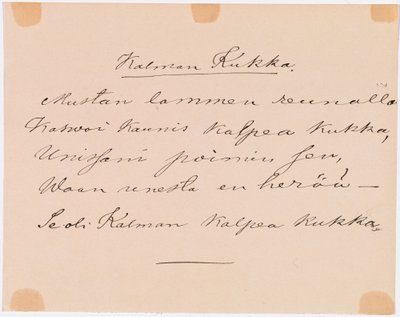 Kalman Kukka.
Mustan lammen reunalla
Kaswoi kaunis kalpea kukka,
Unissani poimin sen,
Waan unesta en herää —
Se oli Kalman kalpea kukka.